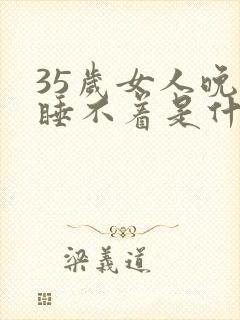 35岁女人晚
睡不着是什
梁义道